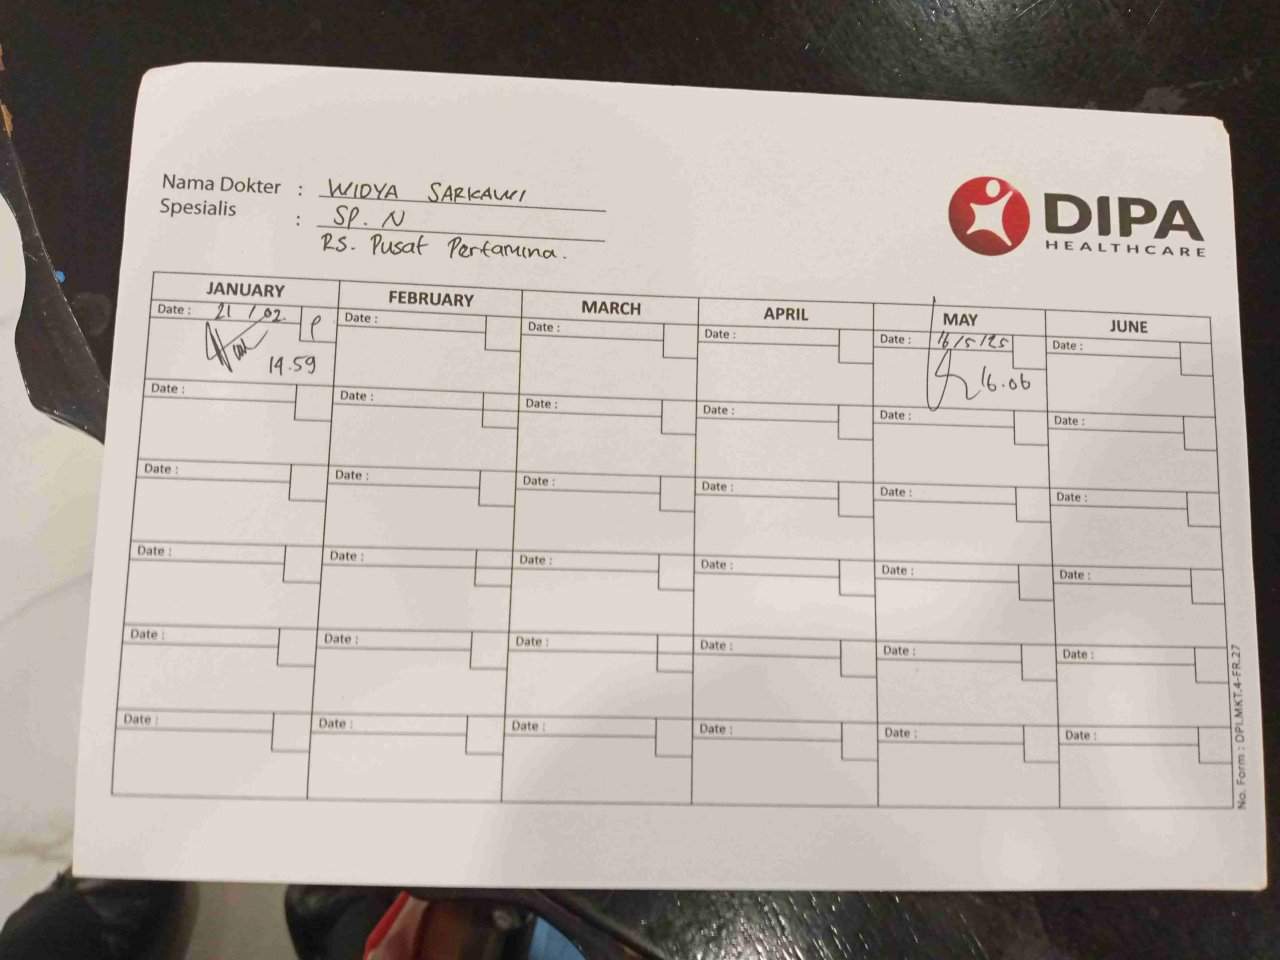 Nama Dokter : WIDYA SARKAWI
Spesialis : SP. N
RS. Pusat Pertamina.
DIPA
HEALTHCARE
JANUARY FEBRUARY MARCH APRIL MAY JUNE
Date : 21 / 02 P Date : Date : Date : Date : 16/5/25 Date :
14.59 16.06
Date : Date : Date : Date : Date : Date :
Date : Date : Date : Date : Date : Date :
Date : Date : Date : Date : Date : Date :
Date : Date : Date : Date : Date : Date :
Date : Date : Date : Date : Date : Date :
No. Form : DPI.MKT.4-FR.27